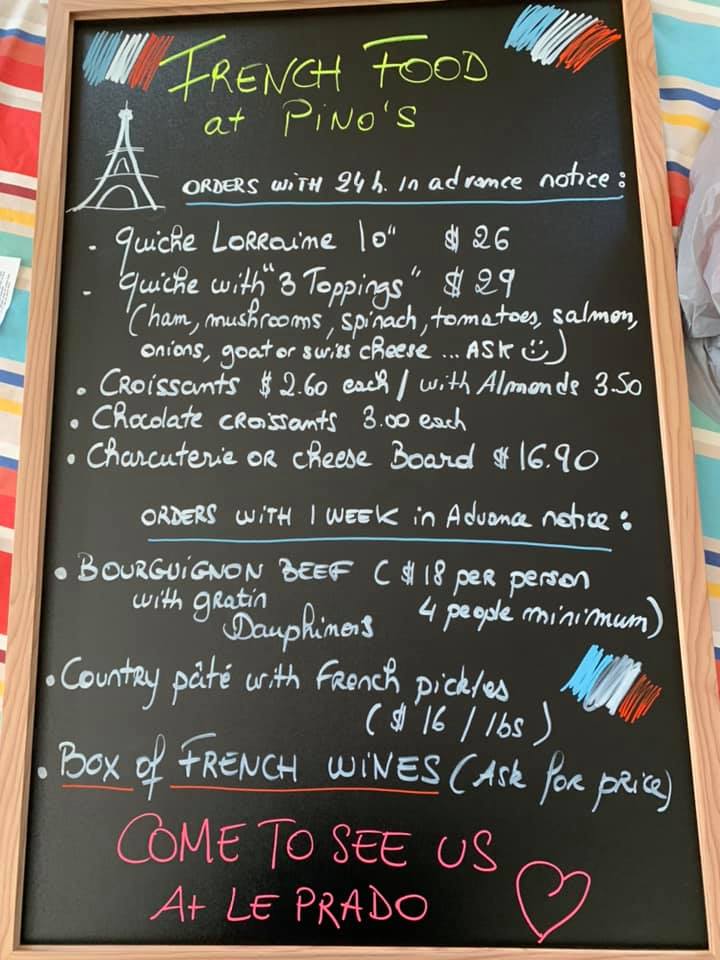 FRENCH FOOD
at PINO'S
ORDERS WITH 24h. In advance notice:
- Quiche LORRAINE 10" $ 26
- Quiche with "3 Toppings" $ 29
(ham, mushrooms, spinach, tomatoes, salmon,
onions, goat or swiss cheese ... ASK ☺)
• CROISSANTS $ 2.60 each / with Almonds 3.50
• Chocolate CROISSANTS 3.00 each
• Charcuterie OR cheese Board $ 16.90
ORDERS WITH 1 WEEK in Advance notice:
• BOURGUIGNON BEEF ($ 18 per person
with gratin 4 people minimum)
Dauphinois
• Country pâté with French pickles
($ 16 / lbs)
• Box of FRENCH WINES (Ask for price)
COME TO SEE US
At LE PRADO ♡